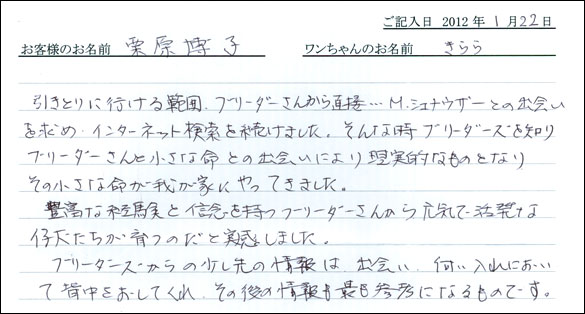 ご記入日 2012年1月22日
お客様のお名前 栗原博子 ワンちゃんのお名前 きらら
引きとりに行ける範囲、ブリーダーさんから直接…M.シュナウザーとの出会い
を求め、インターネット検索を続けました。そんな時ブリーダーズを知り
ブリーダーさんと小さな命との出会いにより現実的なものとなり
その小さな命が我が家にやってきました。
豊富な経験と信念を持つブリーダーさんから元気で活発な
仔犬たちが育つのだと実感しました。
ブリーダーズからの少し先の情報は、出会い、伺い入れにおい
て背中をおしてくれ、その後の情報も最も参考になるものです。